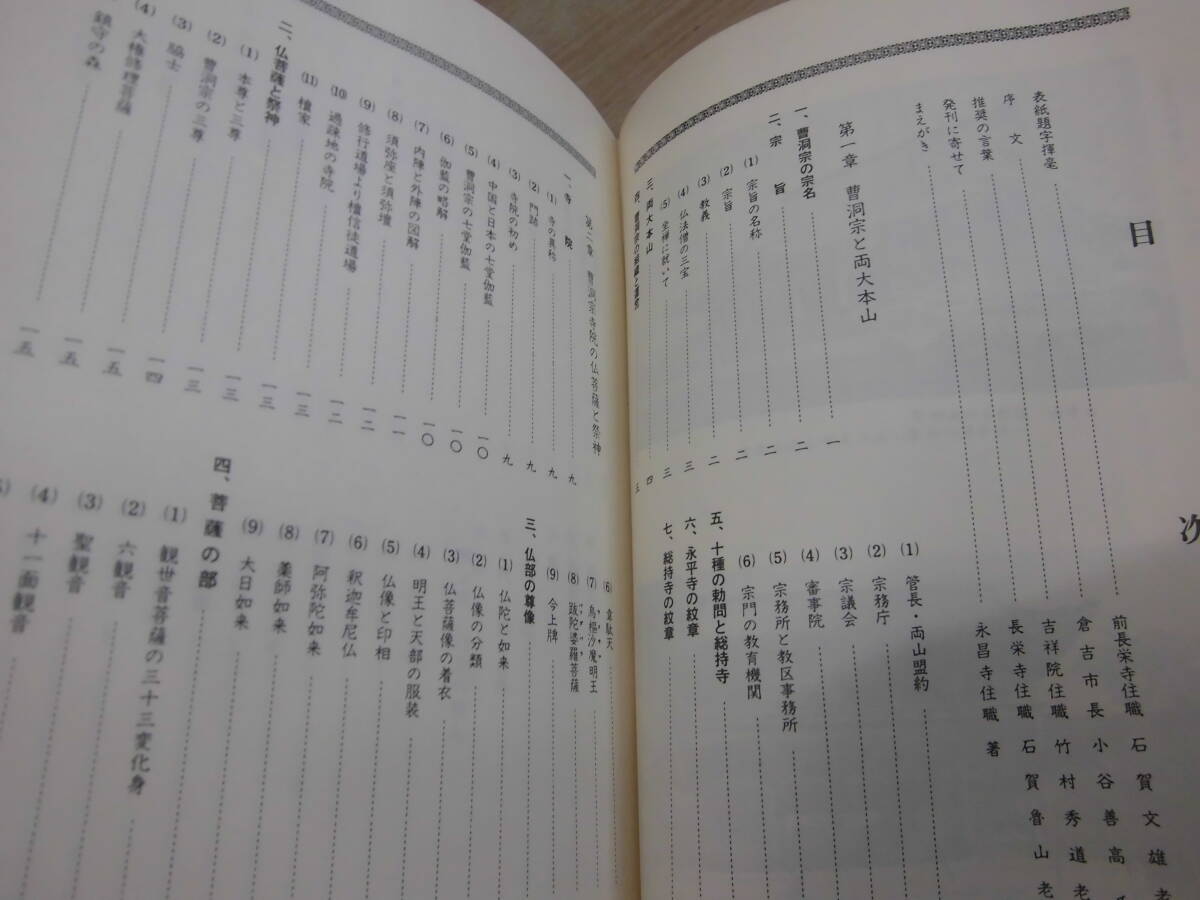 目次
表紙題字揮毫 前長栄寺住職 石賀文雄老
序文 倉吉市長 小谷善高
推奨の言葉 吉祥院住職 竹村秀道老
発刊に寄せて 長栄寺住職 石賀魯山老
まえがき 永昌寺住職 著
第一章 曹洞宗と両大本山
一、曹洞宗の宗名 一
二、宗旨 二
(1) 宗旨の名称 二
(2) 宗旨 二
(3) 教義 二
(4) 仏法僧の三宝 三
(5) 坐禅に就いて 三
三、両大本山 四
四、曹洞宗の組織と運営 五
(1) 管長・両山盟約
(2) 宗務庁
(3) 宗議会
(4) 審事院
(5) 宗務所と教区事務所
(6) 宗門の教育機関
五、十種の勅問と総持寺
六、永平寺の紋章
七、総持寺の紋章
第二章 曹洞宗寺院の仏菩薩と祭神
一、寺院 九
(1) 寺の異称 九
(2) 門跡 九
(3) 寺院の初め 九
(4) 中国と日本の七堂伽藍 一〇
(5) 曹洞宗の七堂伽藍 一〇
(6) 伽藍の略解 一〇
(7) 内陣と外陣の図解 一一
(8) 須弥座と須弥壇 一二
(9) 修行道場より檀信徒道場 一二
(10) 過疎地の寺院 一三
(11) 檀家 一三
二、仏菩薩と祭神 一三
(1) 本尊と三尊 一三
(2) 曹洞宗の三尊 一四
(3) 脇士 一五
(4) 大権修理菩薩 一五
鎮守の森 一五
(6) 韋駄天
(7) 烏枢沙摩明王
(8) 跋陀婆羅菩薩
(9) 今上牌
三、仏部の尊像
(1) 仏陀と如来
(2) 仏像の分類
(3) 仏菩薩像の着衣
(4) 明王と天部の服装
(5) 仏像と印相
(6) 釈迦牟尼仏
(7) 阿弥陀如来
(8) 薬師如来
(9) 大日如来
四、菩薩の部
(1) 観世音菩薩の三十三変化身
(2) 六観音
(3) 聖観音
(4) 十一面観音